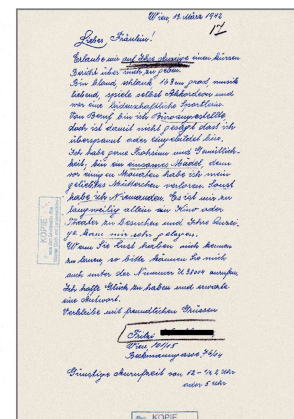 Wien, 12. März 1942
17
Liebes Fräulein!
Erlaube mir auf Ihre Anzeige einen kurzen
Bericht über mich zu geben.
Bin blond, schlank 163 cm groß, musik
liebend, spiele selbst Akkordeon und
war eine leidenschaftliche Sportlerin.
Von Beruf bin ich Büroangestellte
doch ist damit nicht gesagt dass ich
überspannt oder eingebildet bin.
Ich habe gerne Frohsinn und Gemütlich-
keit, bin ein einsames Mädel, denn
vor einigen Monaten habe ich mein
geliebtes Mütterchen verloren. Sonst
habe ich Niemanden. Es ist mir zu
langweilig allein ein Kino oder
Theater zu besuchen und Ihre Anzei-
ge kam mir sehr gelegen.
Wenn Sie Lust haben mich kennen
zu lernen, so bitte können Sie mich
auch unter der Nummer U 38004 anrufen.
Ich hoffe Glück zu haben und erwarte
eine Antwort.
Verbleibe mit freundlichen Grüssen
Wien, 101/15
76/14
Günstige Anrufzeit von 12 - 1/2 2 Uhr
oder 5 Uhr
KOPIE
KOPIE